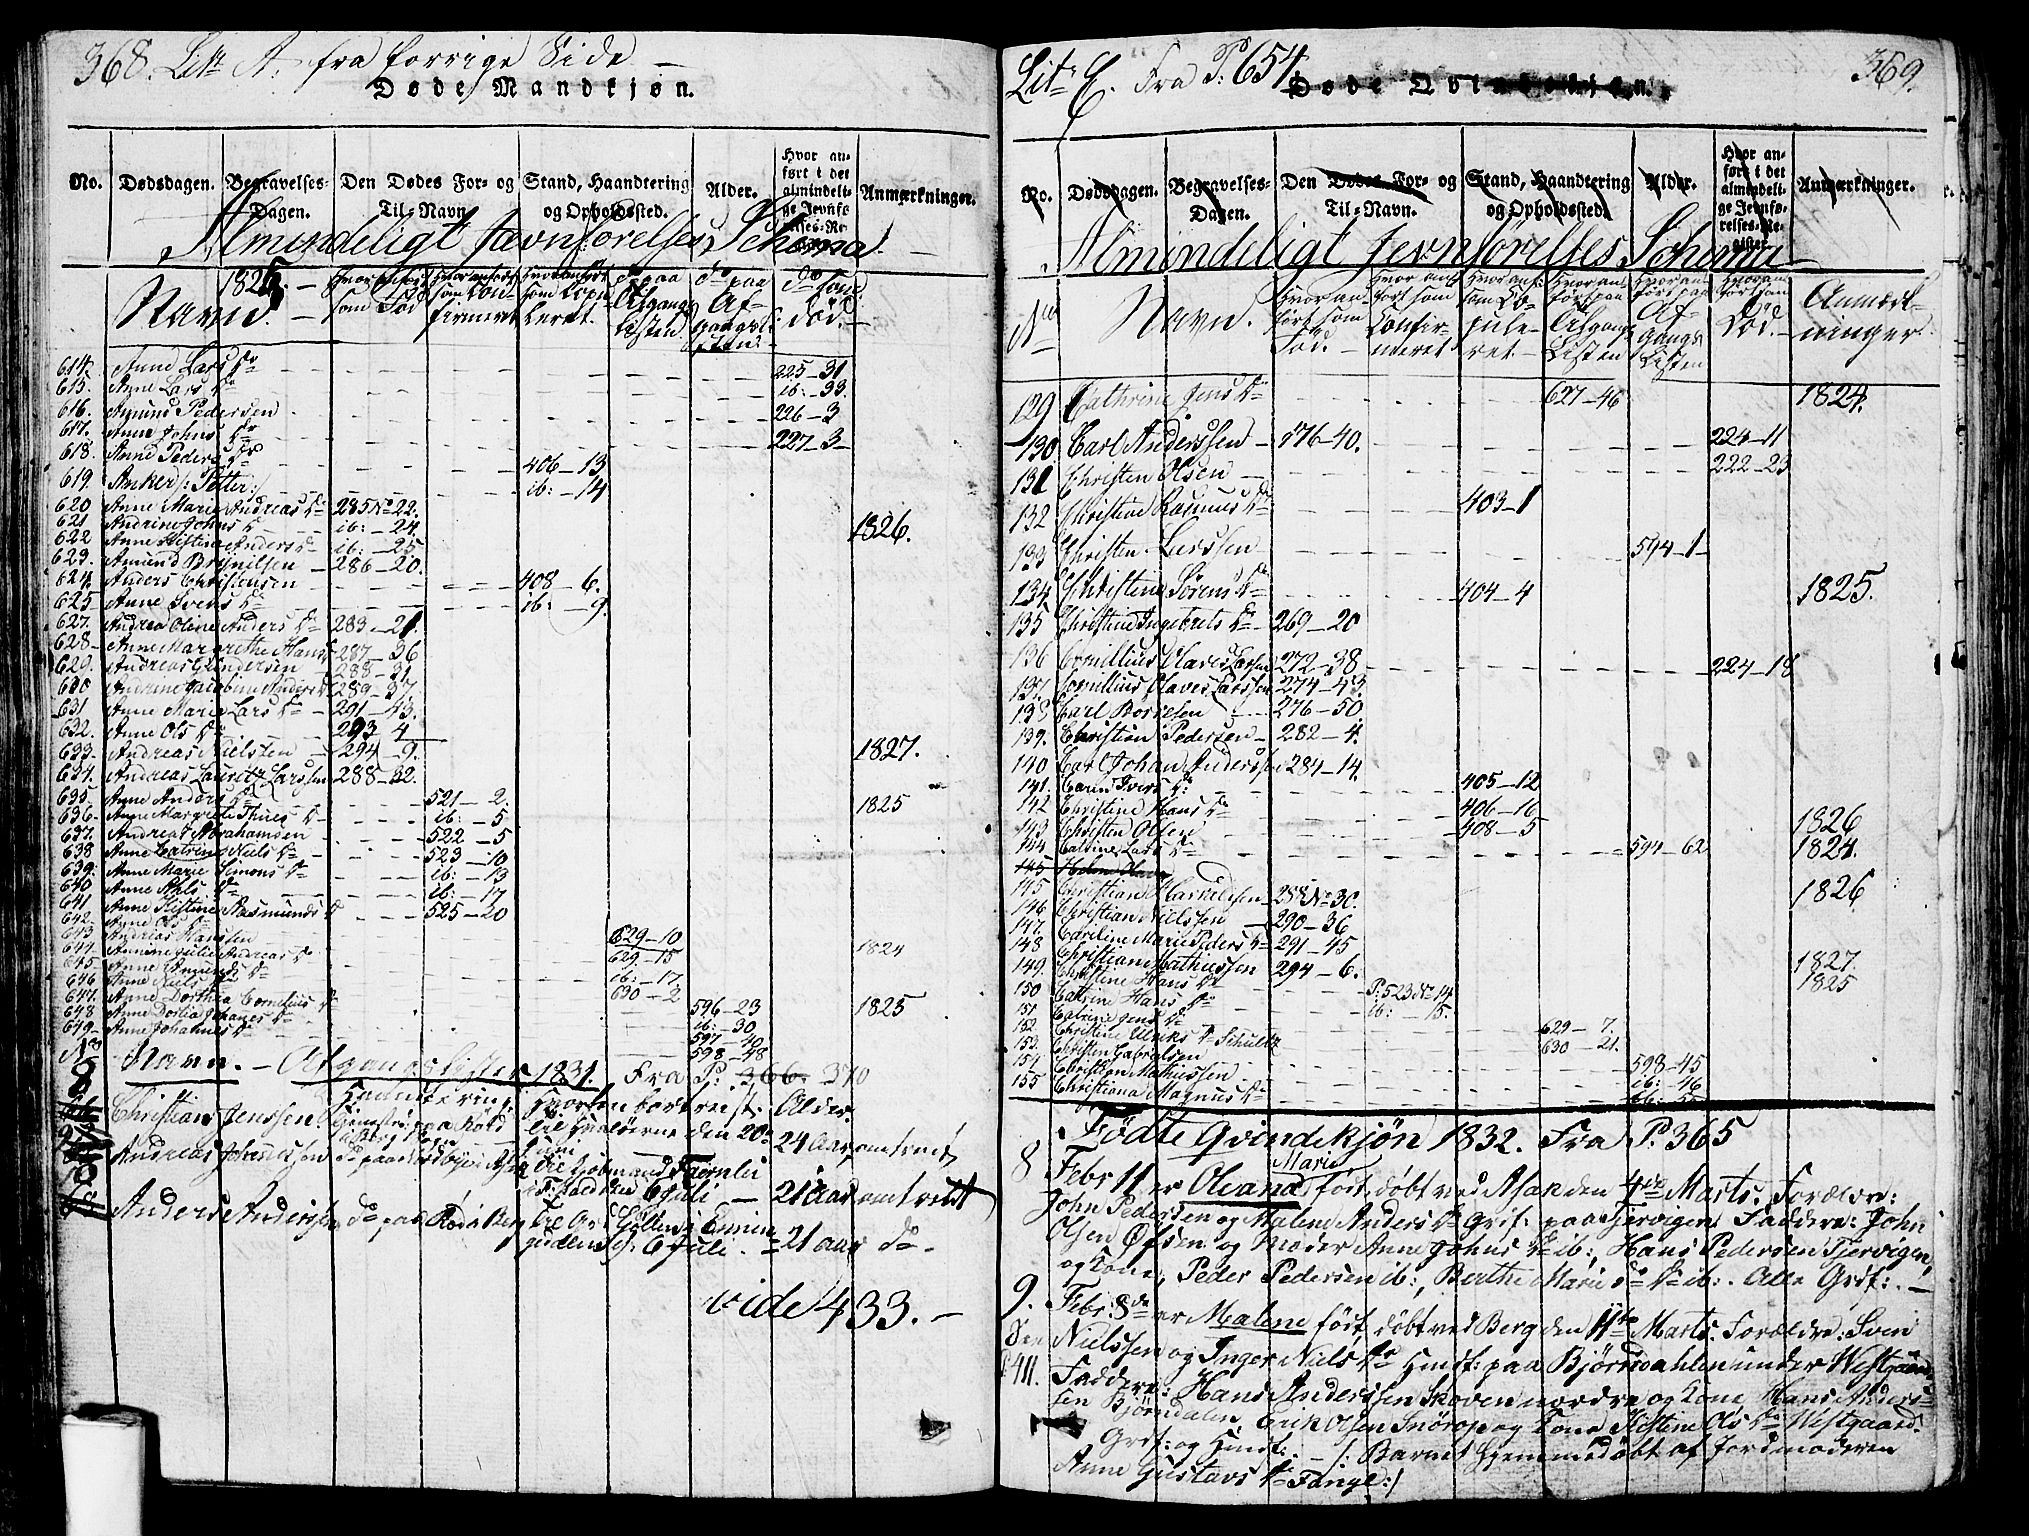 368. Litr A. fra forrige Side
Døde Mandkjøn.
No. Dødsdagen. Begravelses-Dagen. Den Dødes For- og Til-Navn. Stand, Haandtering og Opholdssted. Alder. Hvor anført i det almindelige Jevnførelses-Register. Anmærkninger.
Almindeligt Jævnførelses Schema.
1825
Navne.
614. Anne Lars Dr 225-31
615. Anne Lars Dr ib: 33.
616. Amund Pedersen 226-3
617. Anne Johns Dr 227-3
618. Anne Peders Dr 406-13
619. Anker /: Petter:/ ib:-14
620 Anne Marie Andreas Dr 285 No 22.
621 Andrine Johns D ib: - 24.
622 Anne Kistine Anders D ib: - 25 1826.
623. Amund Brynilsen 286-20.
624. Anders Christensen 408-6.
625 Anne Svens D ib: - 9.
627. Andrea Oline Anders Dr 283-21
628 Anne Margrethe Hans 287-36
629. Andreas Gundersen 288-31
630 Andrine Jacobine Anders D 289-37.
631 Anne Marie Lars Dr 291-43.
632. Anne Ols Dr 293-4
633. Andreas Nielsten 294-9. 1827.
634. Andreas Lauritz Larssen 288-32.
635. Anne Anders D 521-2.
636. Anne Margrete Thues D ib: - 5 1825
637. Andreas Abrahamsen 522-5
638 Anne Catrine Niels Dr 523-10
639. Anne Marie Simons Dr ib: - 13
640 Anne Ahls Dr ib: - 17
641 Anne Kistine Rasmunds D 525-20
642 Anne Ols Dr
643 Andreas Hanssen 629-10
644 Annine Julie Andreas Dr 629-15 1824
645 Anne Amunds Dr ib: - 17
646 Anne Niels Dr 630-2
647. Anne Dorthea Cornelius D 596-23
648 Anne Dortia Johanes Dr ib: - 30 1825
649 Anne Johannes Dr 597-40
598-48
No Navn. - Afgangslister 1831. Fra P: 366. 370
Christian Jenssen. Huusmd paa Rød i Berg til Hvaløerne den 20de Juni 24 Aar omtrendt
Andreas Johannessen do paa til Kjøbmand Fajenlie i Fr.hald den 6 Juli - 21 Aar omtrendt
Anders Anderssen do paa Rød i Berg 6 Juli. - 21 aar do
vide 433. -
Litr C. Fra P: 654. 369.
Døde Qvindekjøn.
No. Dødsdagen. Begravelses-Dagen. Den Dødes For- og Til-Navn. Stand, Haandtering og Opholdssted. Alder. Hvor anført i det almindelige Jevnførelses-Register. Anmærkninger.
Almindeligt Jevnførelses Schema
No Navn. Hvor anført som Fød. Hvor anført som Confirmeret Hvor anf: som Copuleret Hvor anført paa Tilgangs Listen Hvor anført paa Afgangs Listen Hvor anført som Død. Anmærkninger
129 Cathrine Jens Dr 627-46 1824.
130 Carl Anderssen 176-40. 224-11
131 Christen Olsen 222-23
132 Christine Rasmus Dr 403-1
133 Christen Larssen 594-1
134 Christine Sørens Dr 404-4 1825.
135 Christine Ingebrets Dr 269-20
136 Cornillius Olaves Larsen 272-38 224-18
137. Cornillius Olaves Larssen 274-43.
138 Carl Borresen 276-50
139. Christian Pedersen 282-4.
140 Carl Johan Anderssen 284-14.
141. Carin Ivers D: 405-12
142 Christine Hans Dr 406-16
143 Christen Olsen 408-5 1826
144 Catrine Lars Dr 594-62 1824.
145 Helene Olava
145 Christian Harrildsen 288 No 30. 1826
146 Christian Nielssen 290-36
147. Caroline Marie Peders Dr 291-45
148 Christian Mathiessen 294-6. 1827.
149. Christine Hans Dr P: 523 No 14. 1825
150 Catrine Hans Dr ib: - 15.
151 Catrine Jens Dr 629-7.
152. Christine Ulriks Dr Schultz 630-21.
153. Christen Gabrielsen 598-45
154. Christian Mathiessen ib: - 46
155 Christiana Magnus Dr
Fødte Qvindekjøn 1832. Fra P. 365
8 Febr 11 er Olvana Marie født, døbt ved Asak den 4de Marts. Forældre:
John Pedersen og Malene Anders Dr Grif: paa Tjervigen Faddere: John
Olsen Øfsen og Moder Anne Johns Dr ib:, Hans Pedersen Tjervigen,
og Kone, Peder Pedersen ib:, Berthe Marie do Dr ib:. Alle Grif: . -
9. Febr: 8de er Malene født, døbt ved Berg den 11te Marts. Forældre: Sven
Nielssen og Inger Niels Dr Husf: paa Bjørndahlen under Westgaard
411. Faddere: Hans Anderssen Skoven nordre og Kone, Hans Anders-
sen Bjørndalen, Erik Olsen Snørop og Kone Kistine Ols Dr Westgaard.
Grif: og Husf: - /: Barnet hjemmedøbt af Jordmoderen
Anne Gustavs Dr Tange:/